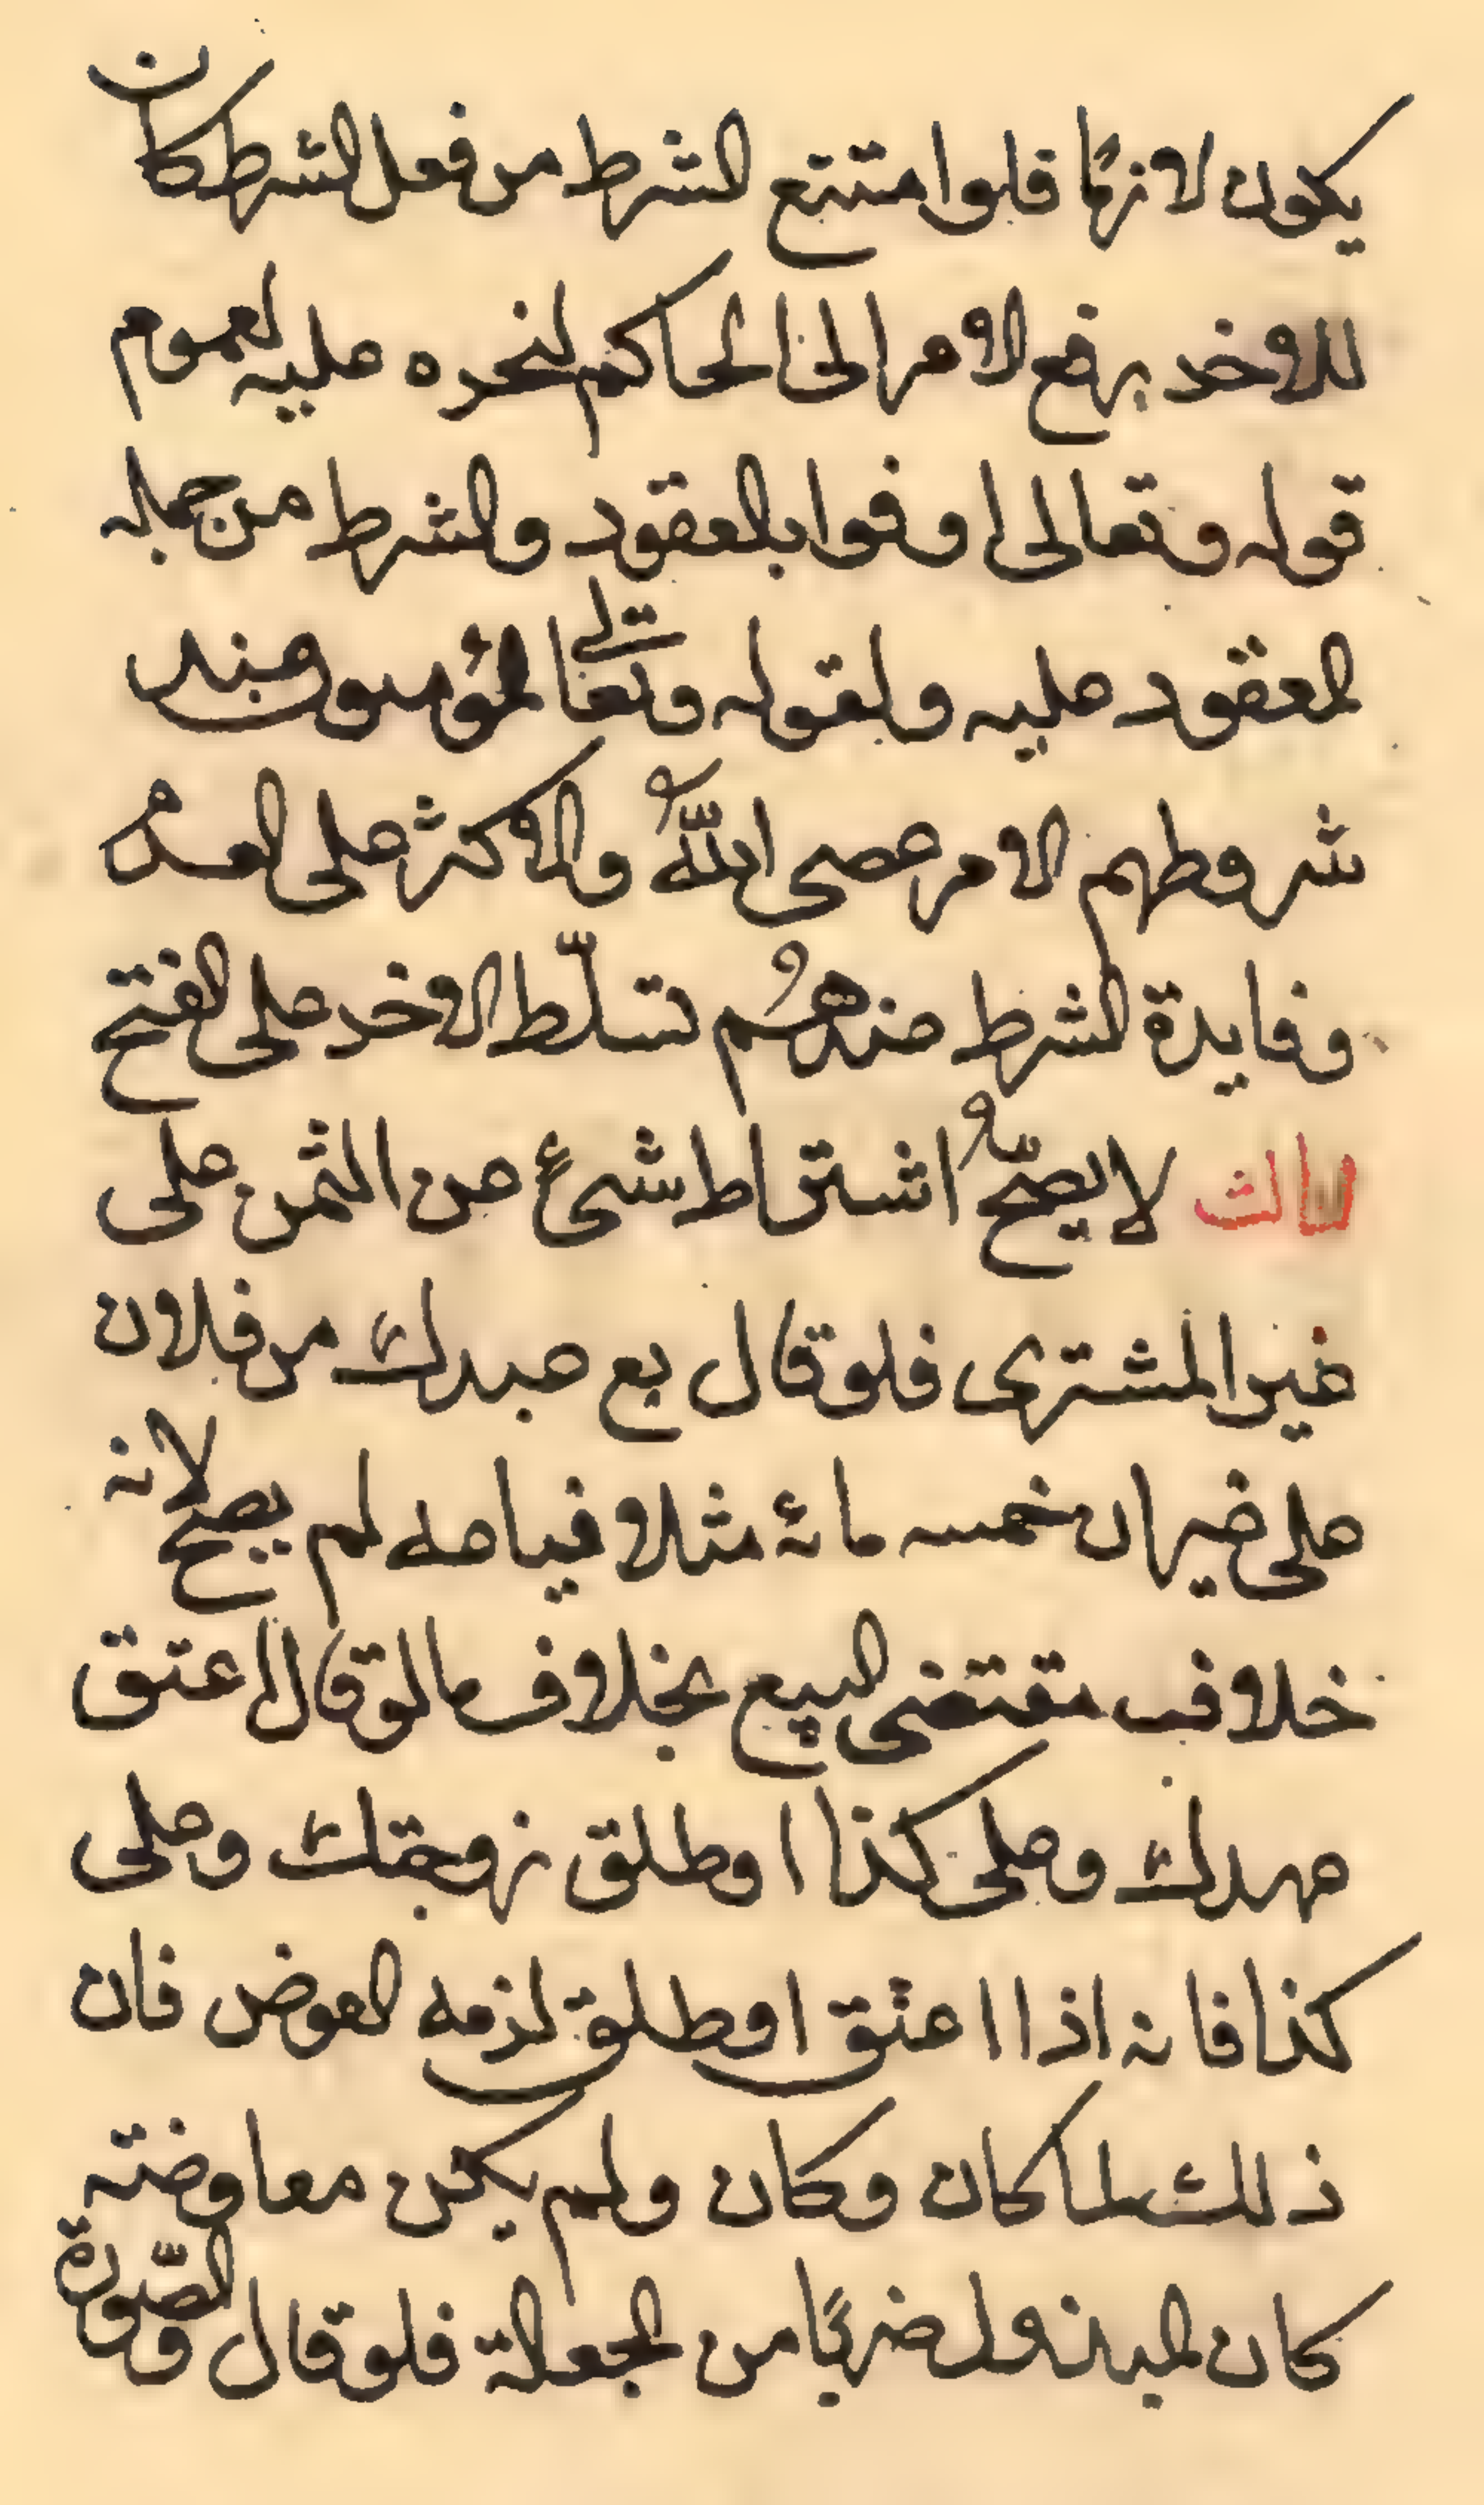 يكون لازمًا فلوا متنع الشرط من فعل الشرط كان
للاخد برفع الامر الى الحاكم لنحده عليه لعموم
قوله وتعالى اوفوا بالعقود والشرط من جمله
العقود عليه ولقوله وتعالى المؤمنون عند
شروطهم الا من عصى اللّه والاكثر على العدم
وفايدة الشرط عندهم تسلّط الاخد على الفتح
الثالث لا يصحّ اشتراط شئ من الثمن على
غير المشترى فلو قال بع عبدك من فلان
على غير ان خمسه مائه مثلا فياعه لم يصح لانه
خلاف مقتضى البيع بخلاف مالو قال اعتق
عبدك وعلى كذا اوطلق زوجتك وعلى
كذا فانه اذا اعتق اوطلق لزمه العوض فان
ذلك لما كان وكان ولم يكن معاوضته
كان المبذول ضربًا من الجعالة فلو قال والصّورة